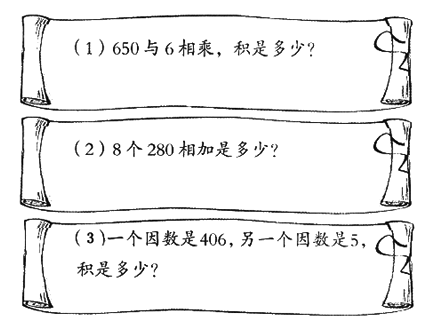 (1)650与6相乘，积是多少？
(2)8个280相加是多少？
(3)一个因数是406，另一个因数是5，
积是多少？